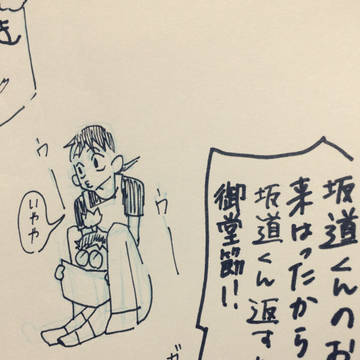 坂道くんのお
来はったから
坂道くん返す
御堂筋!!
ウー
ガ
いやや
ウー
き